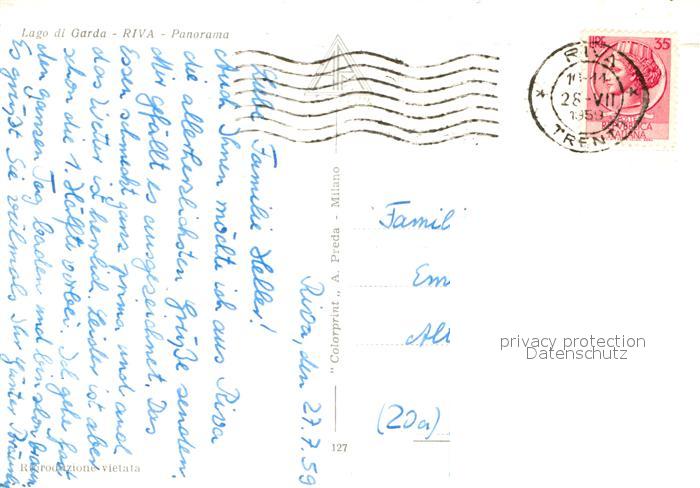 Lago di Garda - RIVA - Panorama
Riva, den 27.7.59
Liebe Familie Heller!
Auch Ihnen möchte ich aus Riva
die allerherzlichsten Grüße senden.
Mir gefällt es ausgezeichnet. Das
Essen schmeckt ganz prima und auch
das Wetter ist herrlich. Leider ist aber
schon die 1. Hälfte vorbei. Ich gehe fast
den ganzen Tag baden und bin schon braun.
Es grüßt Sie vielmals Ihr Günter
Riproduzione vietata
"Colorprint" A. Preda - Milano
127
LIRE 35
RIVA
10-11
28-VII
1959
TRENTO
REPUBBLICA
ITALIANA
Famil
Em
Alt
(20a)
privacy protection
Datenschutz